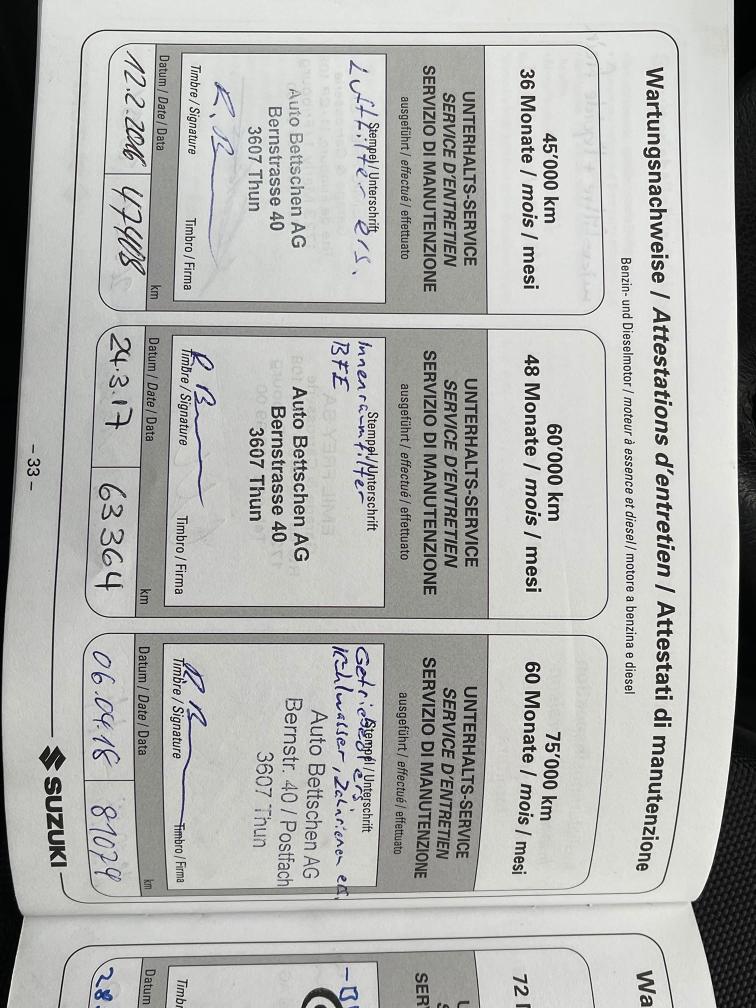 Wartungsnachweise / Attestations d'entretien / Attestati di manutenzione
Benzin- und Dieselmotor / moteur à essence et diesel / motore a benzina e diesel
45'000 km
36 Monate / mois / mesi
UNTERHALTS-SERVICE
SERVICE D'ENTRETIEN
SERVIZIO DI MANUTENZIONE
ausgeführt / effectué / effettuato
Stempel / Unterschrift
Luftfilter ers.
Auto Bettschen AG
Bernstrasse 40
3607 Thun
Timbre / Signature Timbro / Firma
Datum / Date / Data km
12.2.2016 47408
60'000 km
48 Monate / mois / mesi
UNTERHALTS-SERVICE
SERVICE D'ENTRETIEN
SERVIZIO DI MANUTENZIONE
ausgeführt / effectué / effettuato
Stempel / Unterschrift
Innenraumfilter
BFE
Auto Bettschen AG
Bernstrasse 40
3607 Thun
Timbre / Signature Timbro / Firma
Datum / Date / Data km
24.3.17 63364
75'000 km
60 Monate / mois / mesi
UNTERHALTS-SERVICE
SERVICE D'ENTRETIEN
SERVIZIO DI MANUTENZIONE
ausgeführt / effectué / effettuato
Stempel / Unterschrift
Kühlwasser, Zahnriemen
Auto Bettschen AG
Bernstr. 40 / Postfach
3607 Thun
Timbre / Signature Timbro / Firma
Datum / Date / Data km
06.04.18 81079
- 33 -
SUZUKI
Wa
72
SER
Timb
Datum
28.